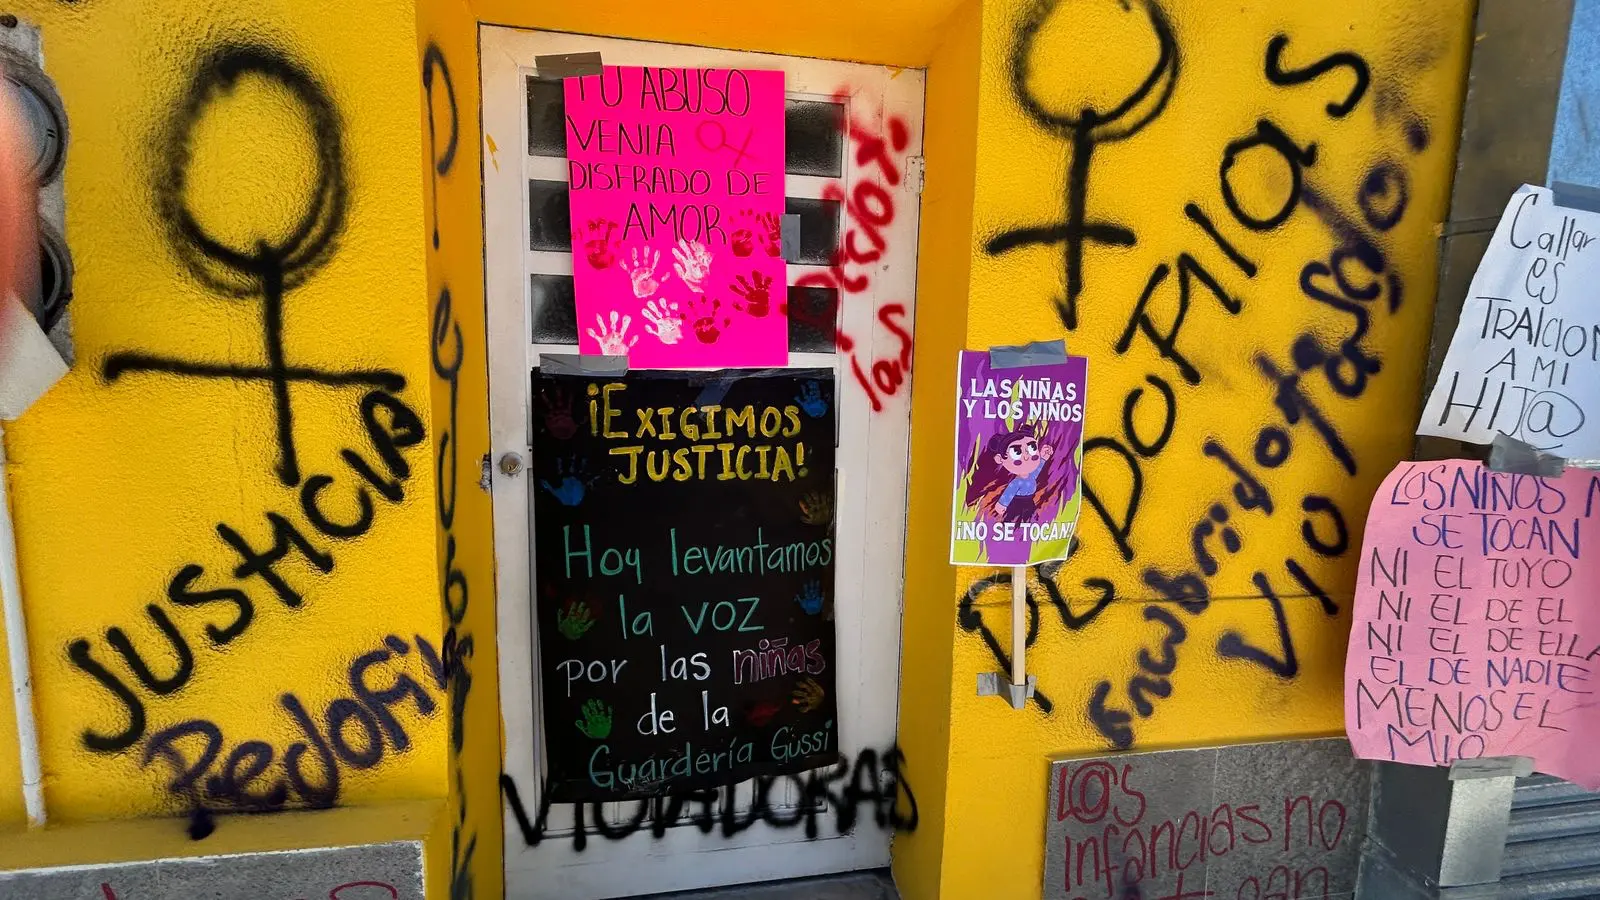 JUSTICIA
PedoFi
TU ABUSO
VENIA
DISFRADO DE
AMOR
¡EXIGIMOS
JUSTICIA!
Hoy levantamos
la VOZ
por las niñas
de la
Guardería Gussi
VIOLADORAS
LAS NIÑAS
Y LOS NIÑOS
¡NO SE TOCAN!
PEDOFILAS
Encubridoras
VIOladoras
Callar
es
TRAICION
A MI
HIJ@
LOS NIÑOS
SE TOCAN
NI EL TUYO
NI EL DE EL
NI EL DE ELLA
EL DE NADIE
MENOS EL
MIO
L@s
infancias no